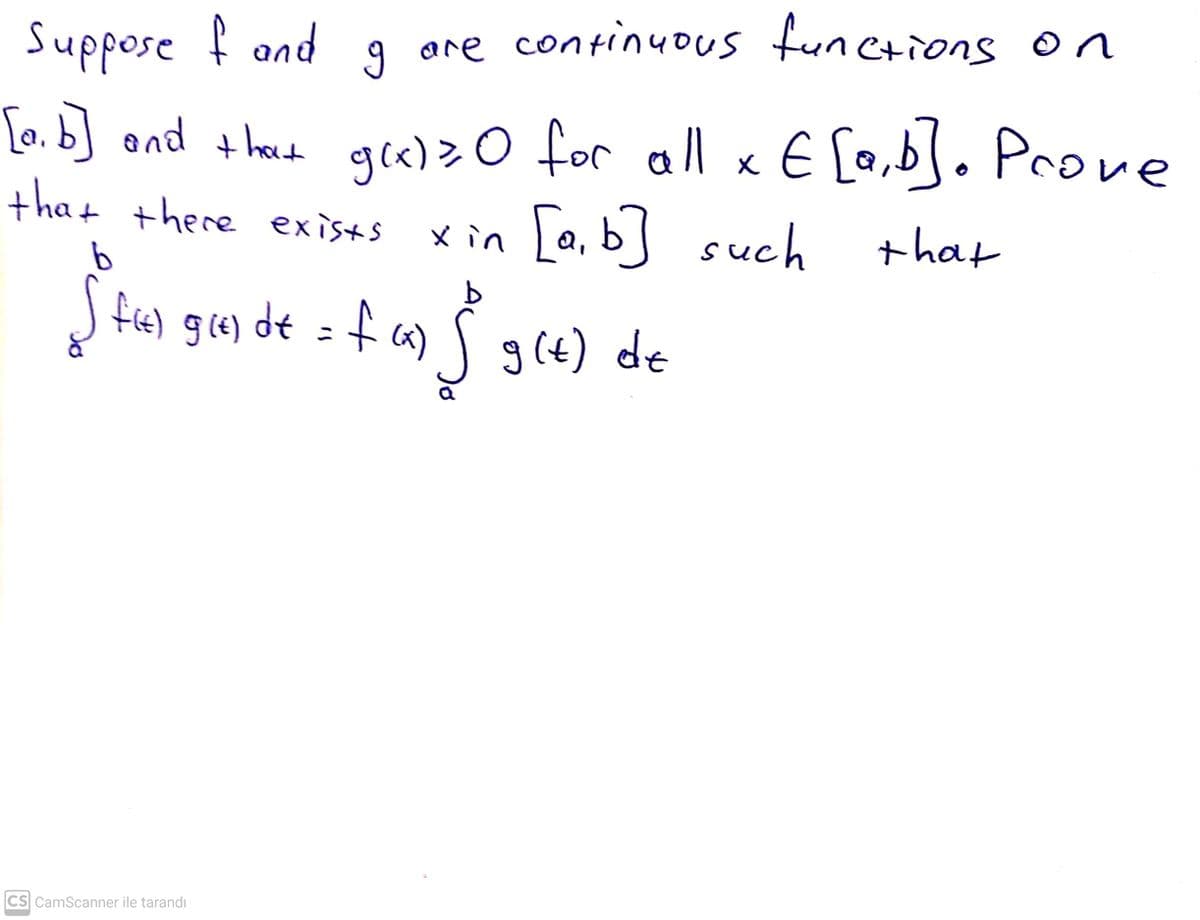 Suppose f and g are continuous functions on
[a,b] and that g(x) ≥ 0 for all x ∈ [a,b]. Prove
that there exists x in [a,b] such that
∫_a^b f(t) g(t) dt = f(x) ∫_a^b g(t) dt
CS CamScanner ile tarandı